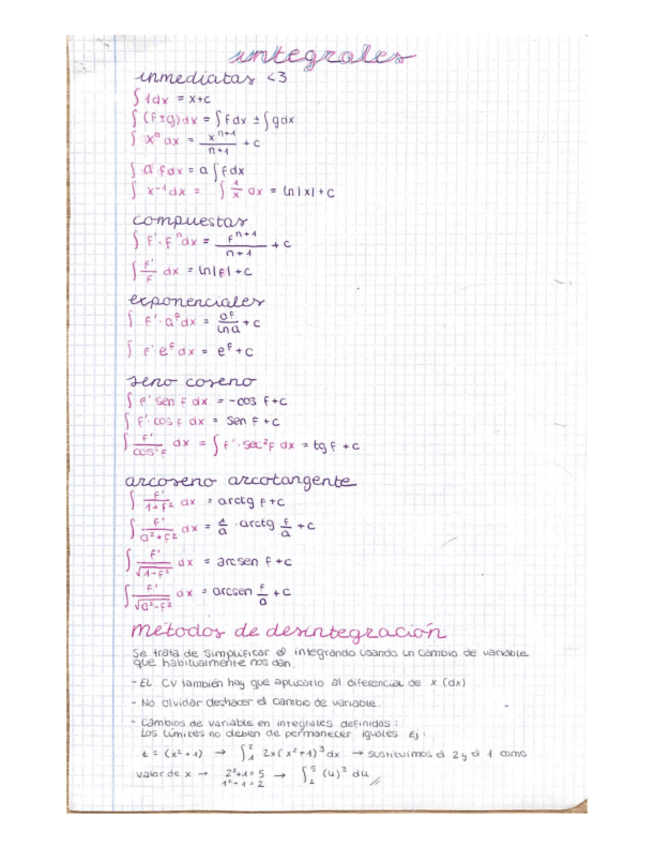 integrales
inmediatas <3
∫ 1dx = x+c
∫ (f±g)dx = ∫fdx ± ∫gdx
∫ xⁿ dx = xⁿ⁺¹/n+1 + c
∫ a fdx = a ∫fdx
∫ x⁻¹dx = ∫ 1/x dx = ln|x|+c
compuestas
∫ f'·fⁿdx = fⁿ⁺¹/n+1 + c
∫ f'/f dx = ln|f|+c
exponenciales
∫ f'·aᶠdx = aᶠ/ln a + c
∫ f'·eᶠ dx = eᶠ+c
seno coseno
∫ f' sen f dx = -cos f+c
∫ f'·cos f dx = sen f+c
∫ f'/cos²f dx = ∫ f'·sec²f dx = tg f +c
arcoseno arcotangente
∫ f'/1+f² dx = arctg f+c
∫ f'/a²+f² dx = 1/a · arctg f/a +c
∫ f'/√1-f² dx = arcsen f+c
∫ f'/√a²-f² dx = arcsen f/a +c
métodos de desintegración
Se trata de simplificar el integrando usando un cambio de variable
que habitualmente nos dan.
- El CV también hay que aplicarlo al diferencial de x (dx)
- No olvidar deshacer el cambio de variable.
- Cambios de variable en integrales definidas:
Los límites no deben de permanecer iguales Ej:
t = (x²+1) → ∫₁² 2x(x²+1)³dx → sustituimos el 2 y el 1 como
valor de x → 2²+1=5 → ∫₂⁵ (u)³ du
1²-1=2